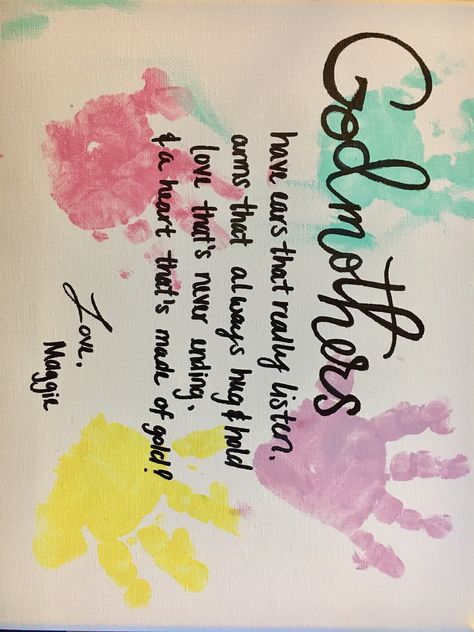 Godmothers
have ears that really listen,
arms that always hug & hold
love that's never ending,
& a heart that's made of gold!
Love,
Maggie